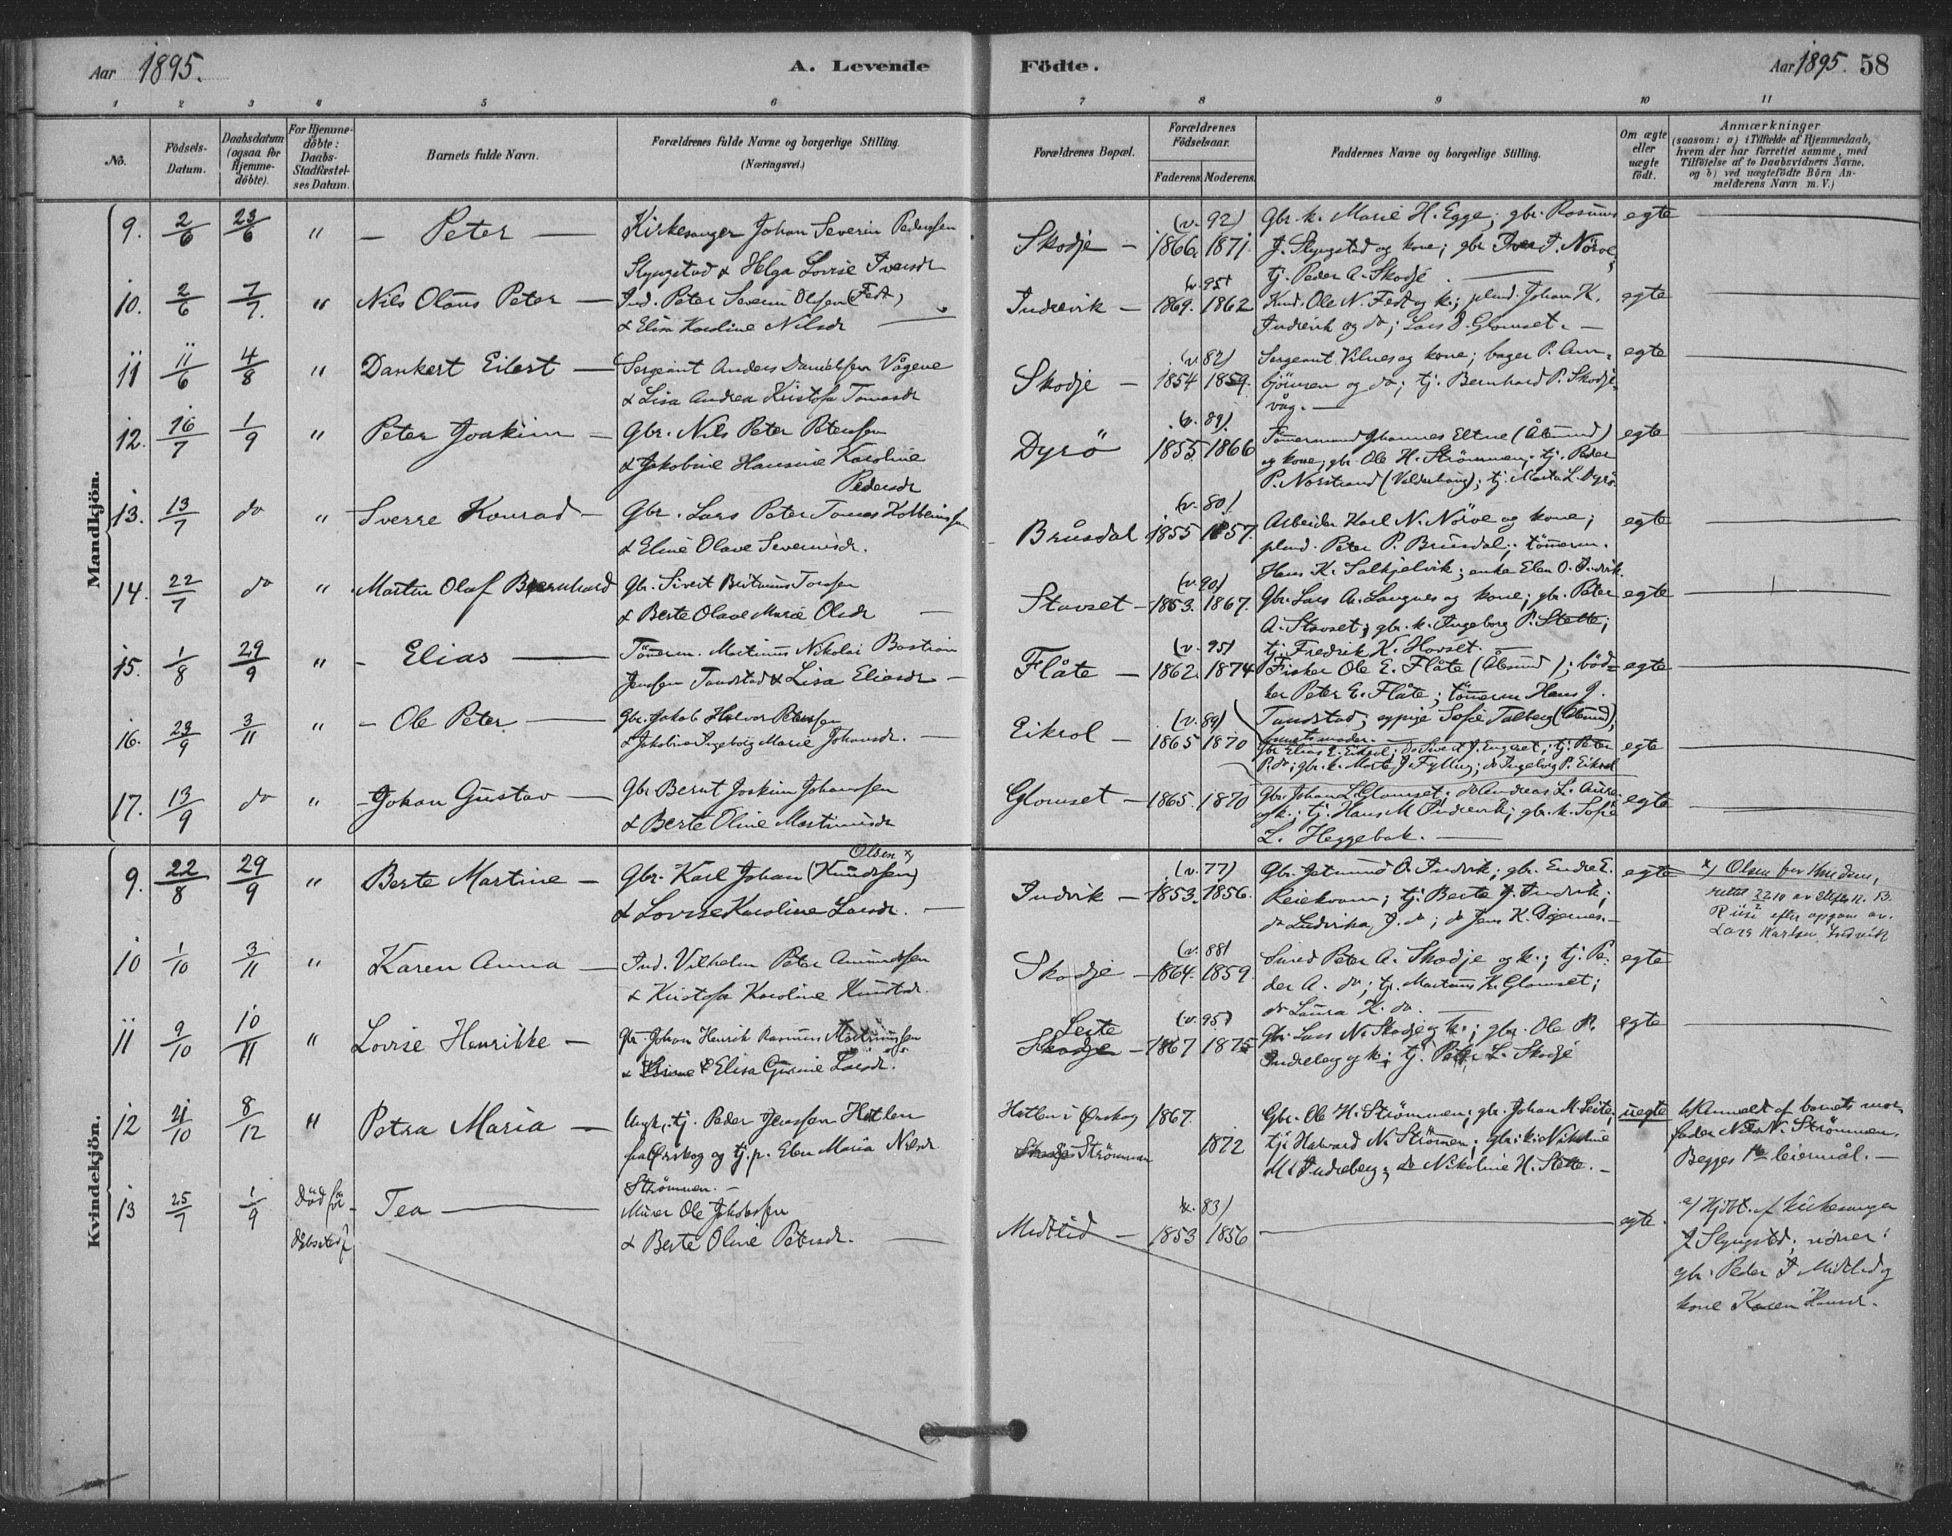 Aar 1895. A. Levende Födte. Aar 1895. 58
1 2 3 4 5 6 7 8 9 10 11
No. Födsels-Datum. Daabsdatum (ogsaa for Hjemme-döbte). For Hjemme-döbte: Daabs-Stadfæstel-ses Datum. Barnets fulde Navn. Forældrenes fulde Navne og borgerlige Stilling. (Næringsvei.) Forældrenes Bopæl. Forældrenes Födselsaar. Faderens. Moderens. Faddernes Navne og borgerlige Stilling. Om ægte eller uægte födt. Anmærkninger (saasom: a) i Tilfælde af Hjemmedaab, hvem der har forrettet samme, med Tilföielse af to Daabsvidners Navne, og b) ved uægtefödte Börn An-melderens Navn m. V.)
Mandkjön.
9. 2/6 23/6 " — Peter — Kirkesanger Johan Severin Pederssen
Slyngstad & Helga Lovise Iversdr Skodje — (v. 92) 1866. 1871. Gbr. k. Marie H. Egge; gbr. Rasmus
J. Slyngstad og kone; gbr Iver I. Nörve;
tj. Peder A. Skodje egte
10. 2/6 7/7. " Nils Olaus Peter — Ind. Peter Severin Olssen (Fedt)
& Elisa Karoline Nilsdr Indrevik — (v. 95) 1869. 1862 Knud. Ole N. Fedt og k.; plud. Johan K.
Indrevik og do; Lars P. Glomset. — egte
11 11/6 4/8 " Dankert Eilert — Sergeant Anders Danielssen Vågene
& Lisa Andrea Kristofa Tomasdr Skodje — (v. 82) 1854 1859. Sergeant Vilnes og kone; bager P. Aun-
björnsen og do; tj. Bernhard P. Skodje-
våg. — egte
12. 16/7 1/9 " Peter Joakim — Gbr. Nils Peter Peterssen
& Jakobine Hansine Karoline
Pedersdr Dyrö (v. 89). 1855. 1866 Tömermand Johannes Eltne (Ålesund)
og kone; gbr. Ole H. Strömmen; tj. Peder
P. Norstrand (Valderhaug); tj. Marta L. Dyrö. egte
13. 13/7 do " Sverre Konrad — Gbr. Lars Peter Tomas Kolbeinssen
& Eline Olave Severinsdr. Brusdal (v. 80) 1855 1857. Arbeider Karl N. Nörve og kone;
plud. Peter P. Brusdal; tömerm.
Hans K. Solkjelvik; enke Elen O. Indrevik. egte
14. 22/7 do " Martin Olaf Bernhard Gbr. Sivert Bertinus Torssen
& Berte Olave Marie Olsdr — Stavset — (v. 90) 1853. 1867. Gbr. Lars A. Langnes og kone; gbr. Peter
A. Stavset; gbr. k. Ingeborg P. Stette;
tj. Fredrik K. Hovset. egte
15. 1/8 29/9 " — Elias — Tömerm. Martinus Nikolai Bastian
Jenssen Tandstad & Lisa Eliasdr — Flåte — (v. 95) 1862. 1874 Fisker Ole E. Flåte (Ålesund); böd-
ker Peter E. Flåte; tömerm Hans J.
Tandstad; ugpige Sofie Talberg (Ålesund),
barnets moder. — egte
16. 23/9 3/11 " — Ole Peter — Gbr. Jakob Halvor Peterssen
& Jakobine Ingeborg Marie Johansdr. — Eikrol — (v. 89) 1865 1870 Gbr Elias E. Eikrol; do Sivert J. Engeset; tj. Peter
P. do; gbr. k. Marte J. Fylling; do Ingeborg P. Eikrol egte
17. 13/9 do " — Johan Gustav — Gbr Bernt Joakim Johanssen
& Berte Oline Martinusdr Glomset — 1865. 1870 Gbr. Johan L. Glomset. do Andreas L. Aure
og k.; tj. Hans M. Indrevik; gbr. k. Sofie
L. Heggebak. — egte
Kvindekjön.
9. 22/8 29/9 " Berte Martine — Gbr. Karl Johan (Knudssen) Olsen x)
& Lovise Karoline Larsdr. — Indrevik — (v. 77) 1853. 1856. Gbr. Jetmund O. Indrevik; gbr. Endre E.
Reiekvam; tj. Berte J. Indrevik;
do Ludvika J. do; do Jens K. Digernes. — egte x) Olsen for Knudsen,
rettet 22/2 10 av
efter opgave av
Lars Karlsen, Indrevik
10 1/10 3/11 " Karen Anna — Ind. Vilhelm Peter Amundssen
& Kristofa Karoline Knutsdr. Skodje — (v. 88) 1864. 1859. Smed Peter A. Skodje og k.; tj. Pe-
der A. do; tj. Martinus K. Glomset;
do Laura K. do. egte
11 9/10 10/11 " Lovise Henrikke — Gbr. Johan Henrik Rasmus Martinussen
& Elisa Gurine Larsdr. Leite
Skodje — (v. 95) 1867 1875 Gbr. Lars N. Skodje og k.; gbr. Ole P.
Indreberg og k; tj. Peter L. Skodje egte
12 21/10 8/12 " Petra Maria — Ungk. tj. Peder Jenssen Hatlen
fra Örskog og tj. p. Elen Maria Nilsdr
Strömmen. — Hatlen i Örskog
Strömmen 1867. 1872 Gbr. Ole H. Strömmen; gbr. Johan M. Leite;
tj. Halvard N. Strömmen; gbr. k. Nikoline
M. Indreberg; do Nikoline H. Stette. — uegte b) Anmeldt af barnets mor-
fader N. Strömmen.
Begges 1ste leiermål. —
13 25/7 1/9 Död för — Tea — Murer Ole Jakobssen
& Berte Oline Petersdr. — Midtlid — (v. 83) 1853 1856 — egte. a) Hjdbt. af kirkesanger
J. Slyngstad; vidner:
gbr. Peder J. Midtlid og
kone Karen Hansdr.